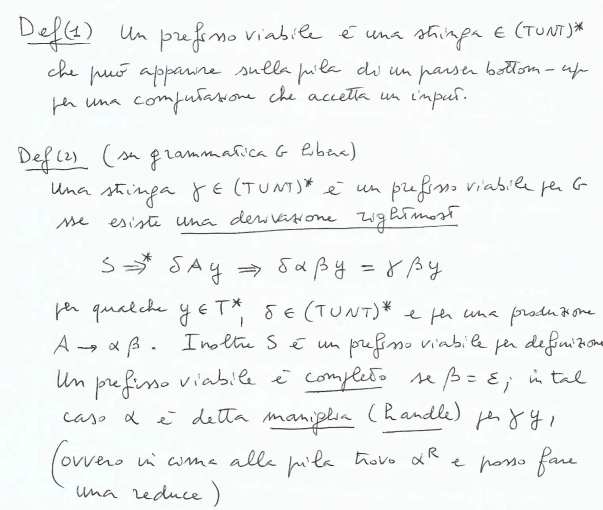 Def(1) Un prefisso viabile è una stringa ∈ (TUNT)*
che può apparire sulla pila di un parser bottom-up
per una computazione che accetta un input.
Def(2) (su grammatica G libera)
Una stringa γ ∈ (TUNT)* è un prefisso viabile per G
sse esiste una derivazione rightmost
S ⇒* δAy ⇒ δαβy = γβy
per qualche y ∈ T*, δ ∈ (TUNT)* e per una produzione
A → αβ. Inoltre S è un prefisso viabile per definizione
Un prefisso viabile è completo se β = ε; in tal
caso α è detta maniglia (handle) per γy,
(ovvero in cima alla pila trovo α^R e posso fare
una reduce)